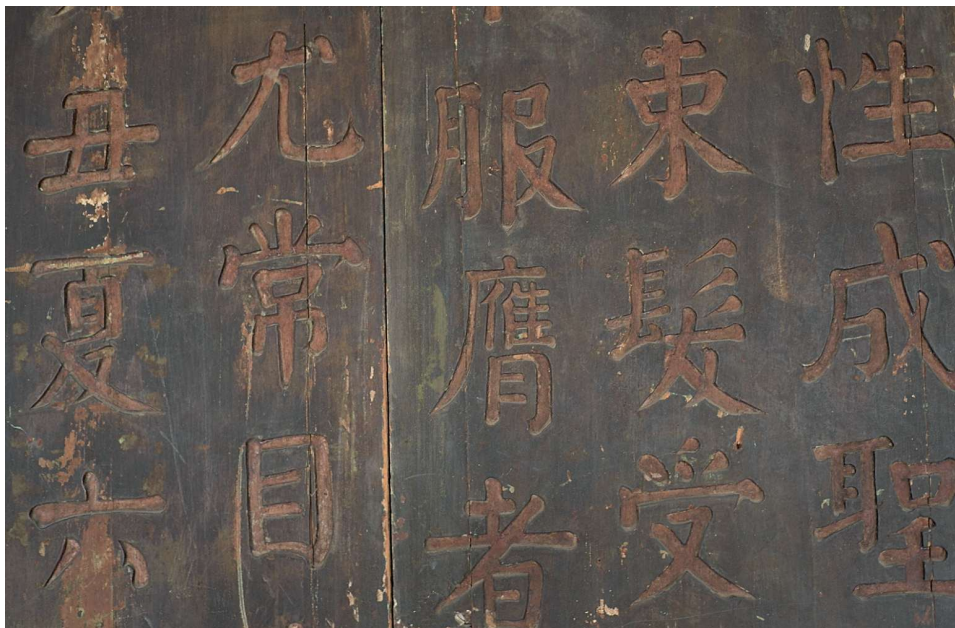 性成聖
束髮受
服膺者
尤常目
丑夏六